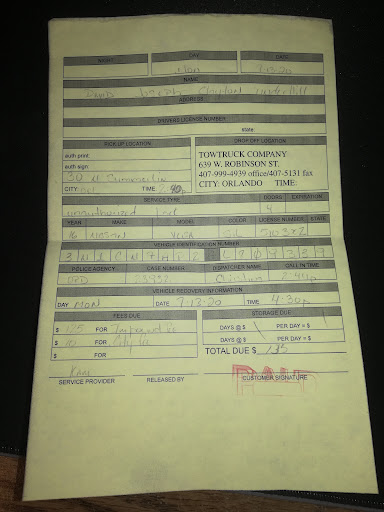 NIGHT DAY DATE
Mon 7-13-20
NAME
David Joseph Clayton Underhill
ADDRESS
DRIVERS LICENSE NUMBER
state:
PICK UP LOCATION DROP OFF LOCATION
auth print
auth sign
30 N Summerlin
CITY: TIME: 2:40p
TOWTRUCK COMPANY
639 W. ROBINSON ST.
407-999-4939 office/407-5131 fax
CITY: ORLANDO TIME:
SERVICE TYPE DOORS EXPIRATION
unauthorized 4
YEAR MAKE MODEL COLOR LICENSE NUMBER STATE
16 NISSAN
VEHICLE IDENTIFICATION NUMBER
3 N 1 C N 7 A P
POLICE AGENCY CASE NUMBER DISPATCHER NAME CALL IN TIME
OPD
VEHICLE RECOVERY INFORMATION
DAY MON DATE 7-13-20 TIME 4:30p
FEES DUE STORAGE DUE
$ 125 FOR Impound fee DAYS @ $ PER DAY = $
$ 10 FOR City fee DAYS @ $ PER DAY = $
$ FOR TOTAL DUE $ 135
SERVICE PROVIDER RELEASED BY CUSTOMER SIGNATURE
PAID